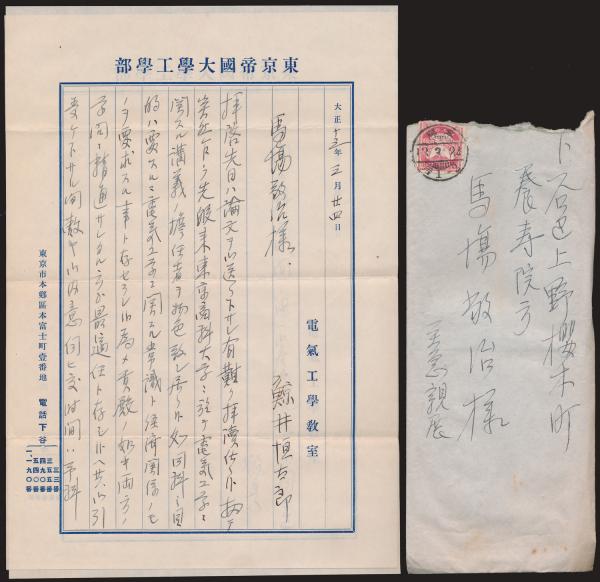 東京帝國大學工學部
大正十三年三月廿四日
電氣工學教室
鯨井恒太郎
馬場敬治様
拝啓先日ハ論文ヲ御送リ下サレ有難ク拝讀仕候
突然ケトモ先般来東京商科大学ニ於テ電気工学ニ
関スル講義ノ擔任者ヲ物色致シ居リ候処同科目ノ目
的ハ要スルニ電気工学ニ関スル常識ト経済関係ノモ
ノヲ要求スル事ト存セラレ候為メ貴殿ノ如キ両方ノ
学問ニ精通サレタル方最適任ト存シ候ヘ共御引
受ケ下サレ間敷ヤ御内意伺ヒ度時間ハ
東京市本郷區本富士町壹番地
電話下谷
下谷區上野櫻木町
養寿院方
馬場敬治様
至急親展
13.3.24